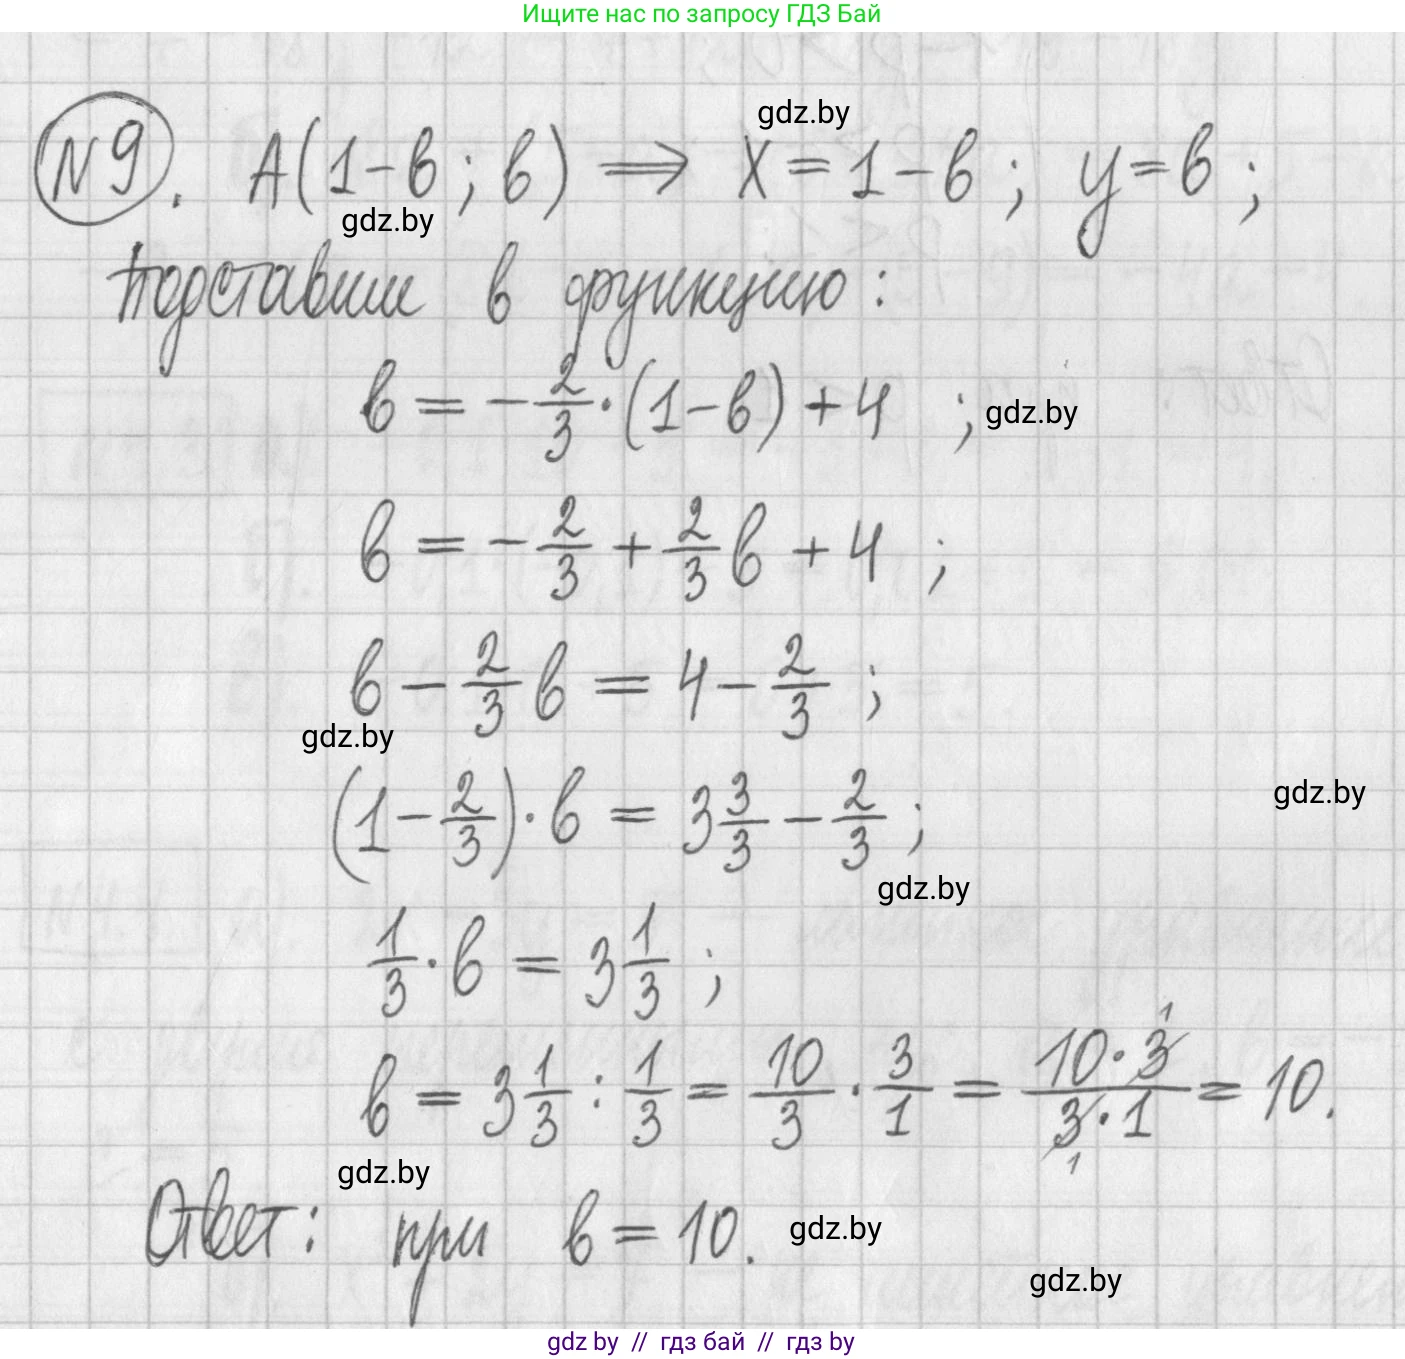 Ищите нас по запросу ГДЗ Бай
gdz.by
№9. A(1-в; в) ⟹ x=1-в; y=в;
gdz.by
Подставим в функцию:
в = -2/3·(1-в)+4 ; gdz.by
в = -2/3 + 2/3 в + 4 ;
в - 2/3 в = 4 - 2/3 ;
gdz.by
(1 - 2/3)·в = 3 3/3 - 2/3 ;
gdz.by
gdz.by
1/3·в = 3 1/3 ;
в = 3 1/3 : 1/3 = 10/3 · 3/1 = 10·3/3·1 = 10.
gdz.by
Ответ: при в = 10. gdz.by
gdz.by
gdz by // гдз бай // гдз by